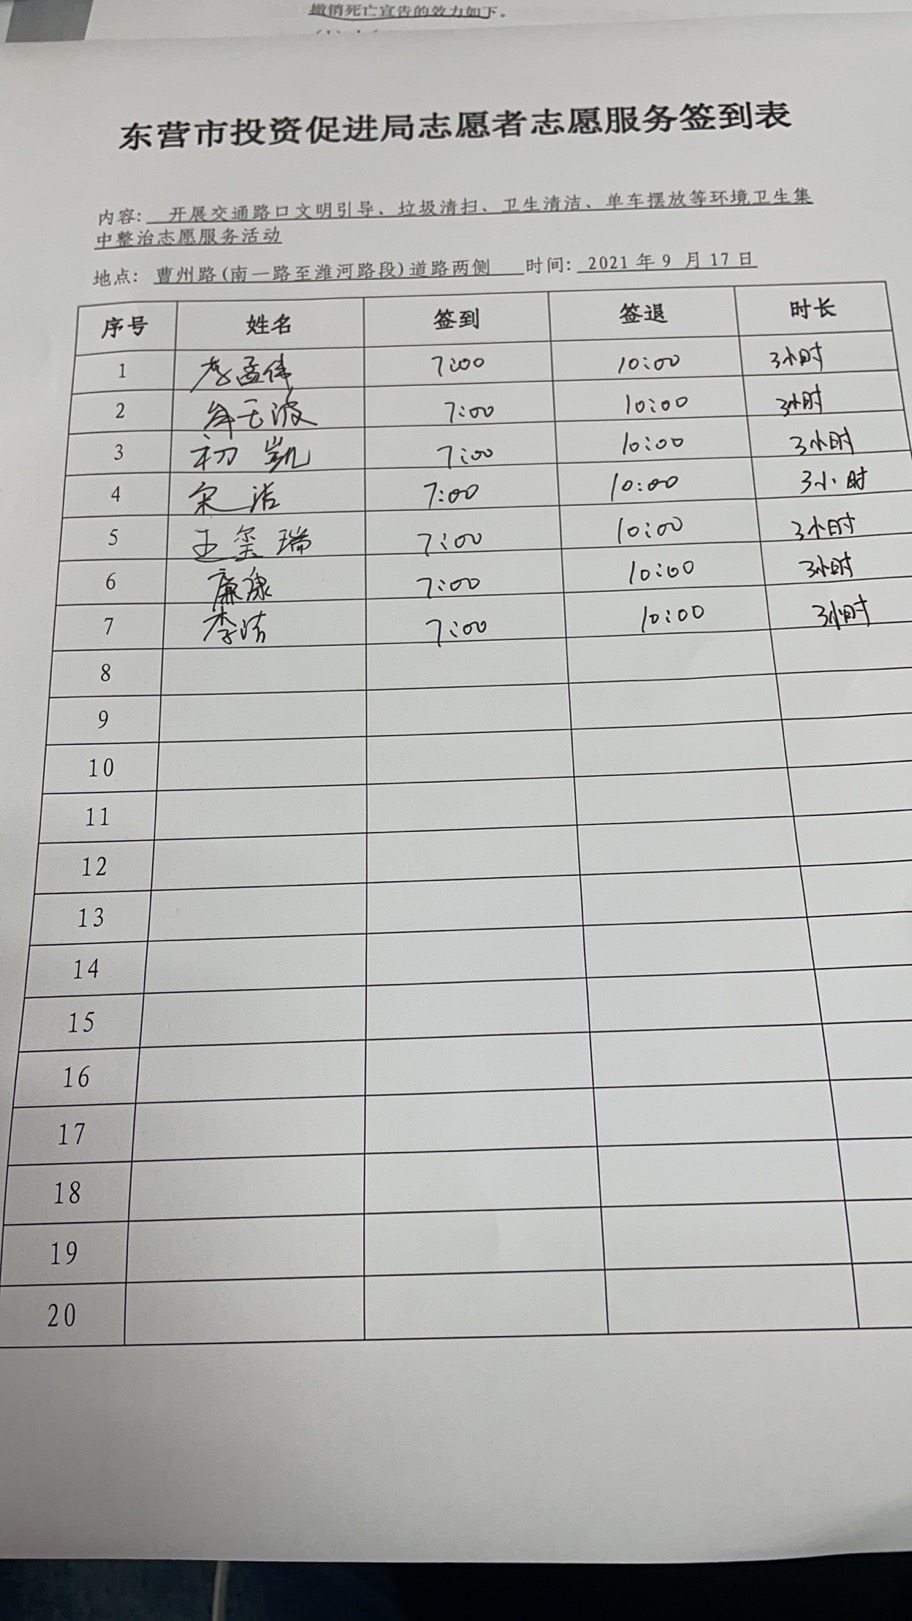 撤销死亡宣告的效力如下。
东营市投资促进局志愿者志愿服务签到表
内容: 开展交通路口文明引导、垃圾清扫、卫生清洁、单车摆放等环境卫生集
中整治志愿服务活动
地点: 曹州路(南一路至潍河路段)道路两侧 时间: 2021年9月17日
序号 姓名 签到 签退 时长
1 李孟伟 7:00 10:00 3小时
2 7:00 10:00 3小时
3 初凯 7:00 10:00 3小时
4 宋洁 7:00 10:00 3小时
5 王玺瑞 7:00 10:00 3小时
6 廉 7:00 10:00 3小时
7 李洁 7:00 10:00 3小时
8
9
10
11
12
13
14
15
16
17
18
19
20